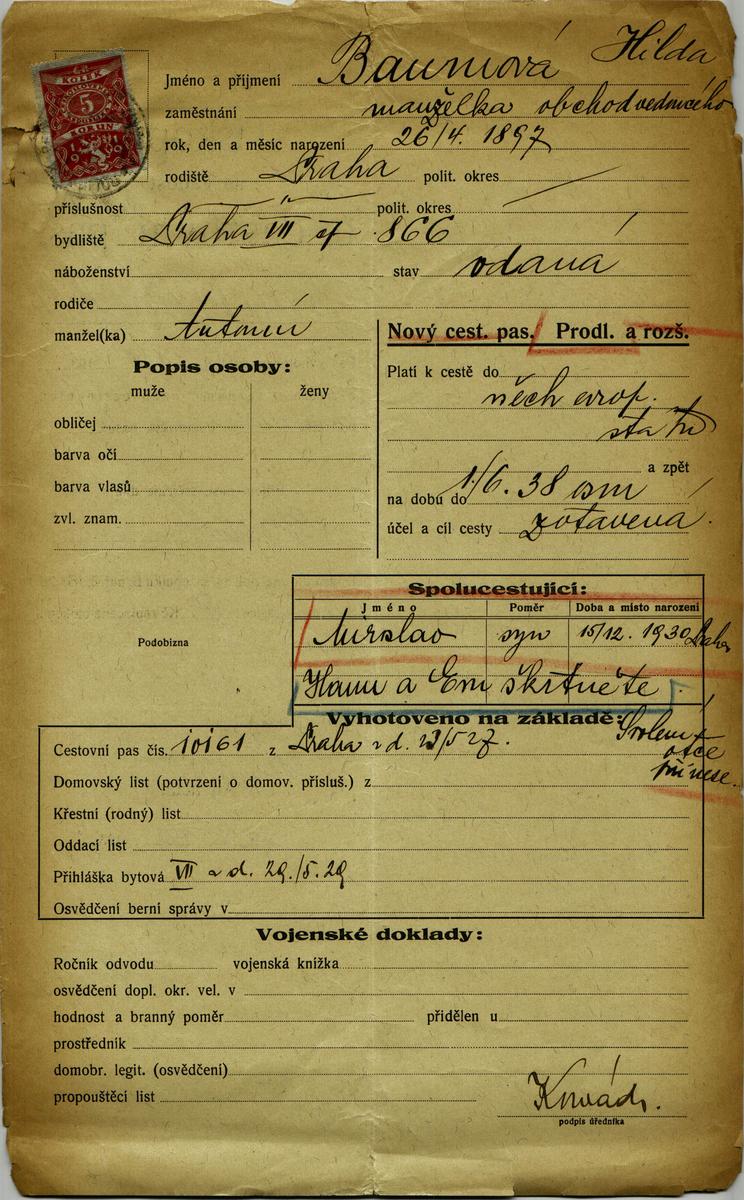 KOLEK
5
KORUN
1919
Jméno a příjmení Baumová Hilda
zaměstnání manželka obchodvedoucího
rok, den a měsíc narození 26/4. 1897
rodiště Praha polit. okres
příslušnost " polit. okres
bydliště Praha VII čp. 866
náboženství stav vdaná
rodiče
manžel(ka) Antonín
Nový cest. pas. Prodl. a rozš.
Popis osoby:
muže ženy
obličej
barva očí
barva vlasů
zvl. znam.
Platí k cestě do
všech evrop.
států
a zpět
na dobu do 1/6. 38
účel a cíl cesty zotavená
Podobizna
Spolucestující:
Jméno Poměr Doba a místo narození
Mirslav syn 15/12. 1930 Praha
Hanu a Evu škrtněte
Vyhotoveno na základě:
Svolení
otce
přinese.
Cestovní pas čís. 10161 z Praha z d. 23/5 27.
Domovský list (potvrzení o domov. přísluš.) z
Křestní (rodný) list
Oddací list
Přihláška bytová VII z d. 29./5. 29
Osvědčení berní správy v
Vojenské doklady:
Ročník odvodu vojenská knížka
osvědčení dopl. okr. vel. v
hodnost a branný poměr přidělen u
prostředník
domobr. legit. (osvědčení)
propouštěcí list
podpis úředníka